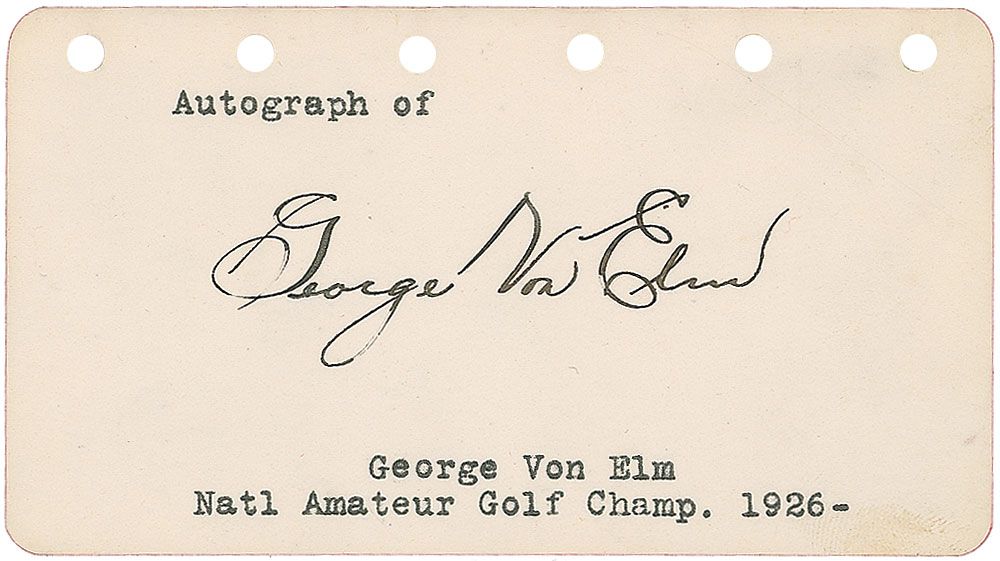 Autograph of
George Von Elm
George Von Elm
Natl Amateur Golf Champ. 1926-